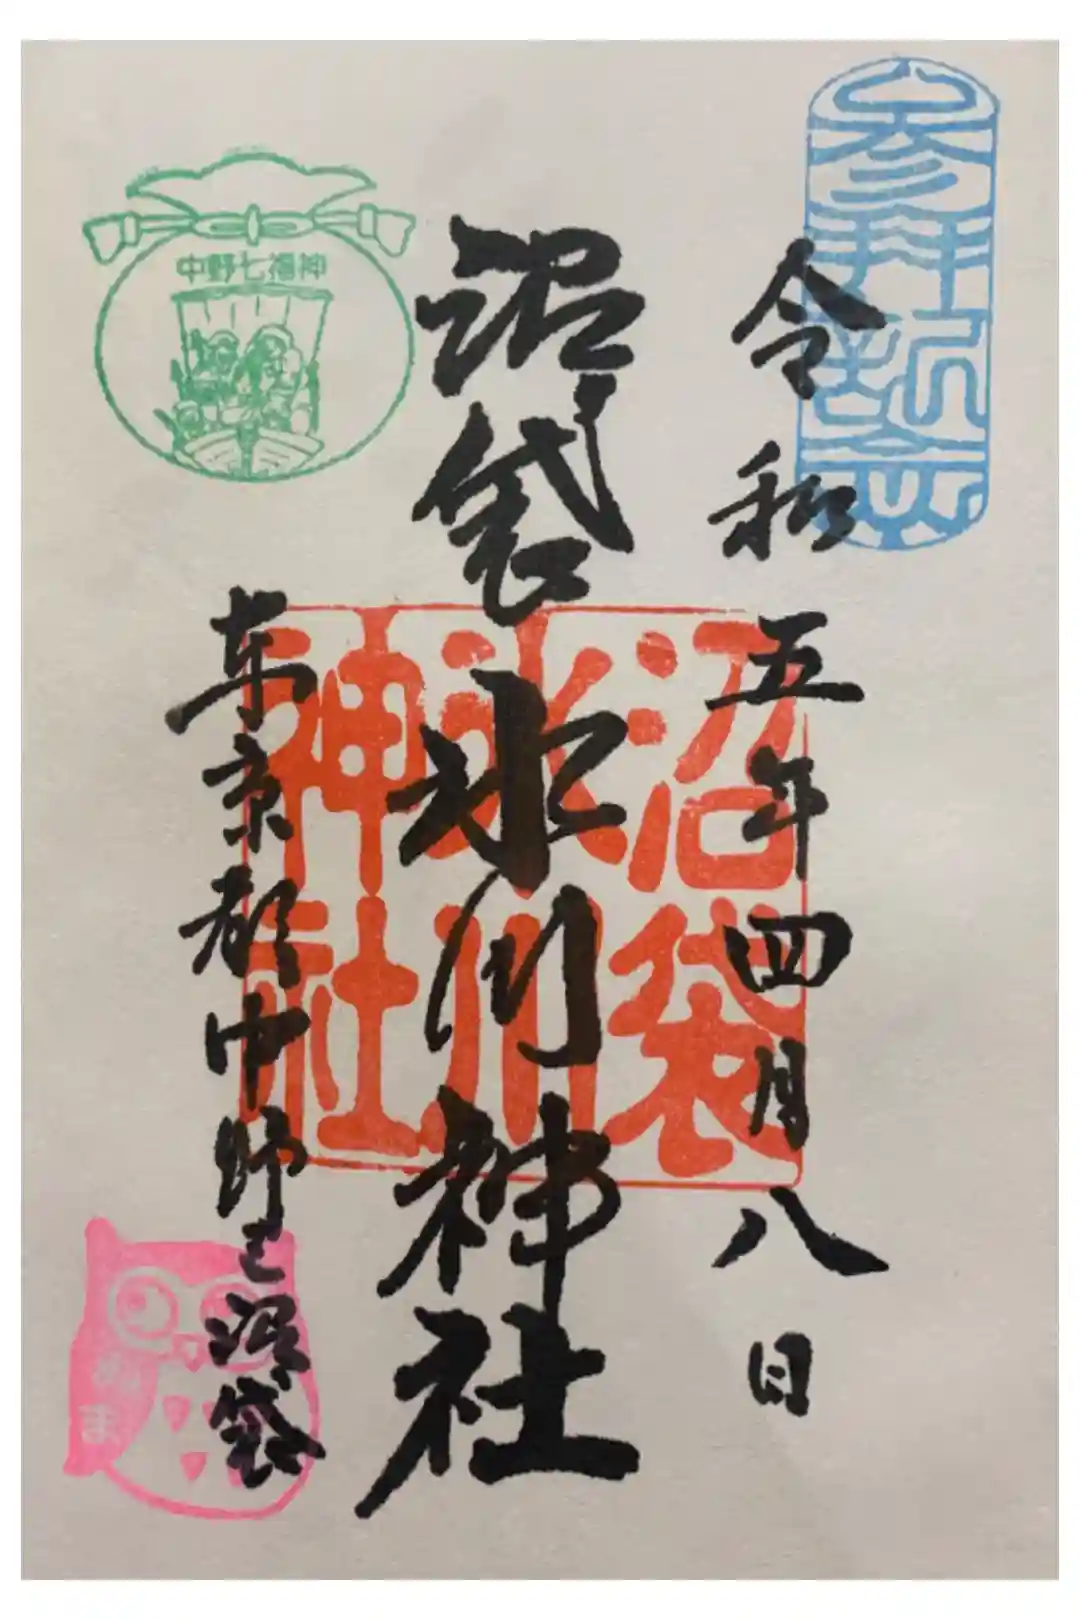 参拝記念
令和五年四月八日
沼袋氷川神社
沼袋
氷川
神社
中野七福神
东京都中野区沼袋
ぬま